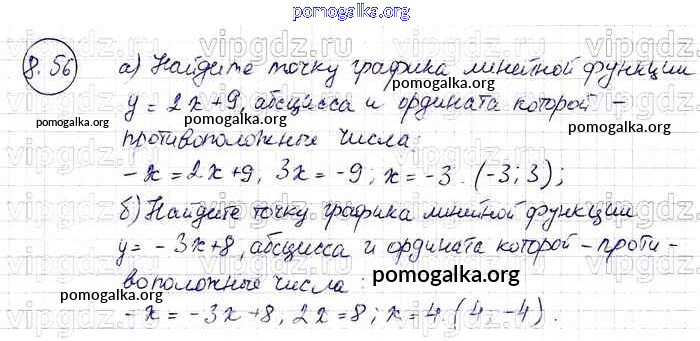 pomogalka.org
8.56
а) Найдите точку графика линейной функции
y = 2x+9, абсцисса и ордината которой –
противоположные числа:
-x = 2x+9, 3x = -9; x = -3. (-3; 3);
б) Найдите точку графика линейной функции
y = -3x+8, абсцисса и ордината которой – проти-
воположные числа:
-x = -3x+8, 2x = 8; x = 4. (4; -4).
vipgdz.ru
pomogalka.org